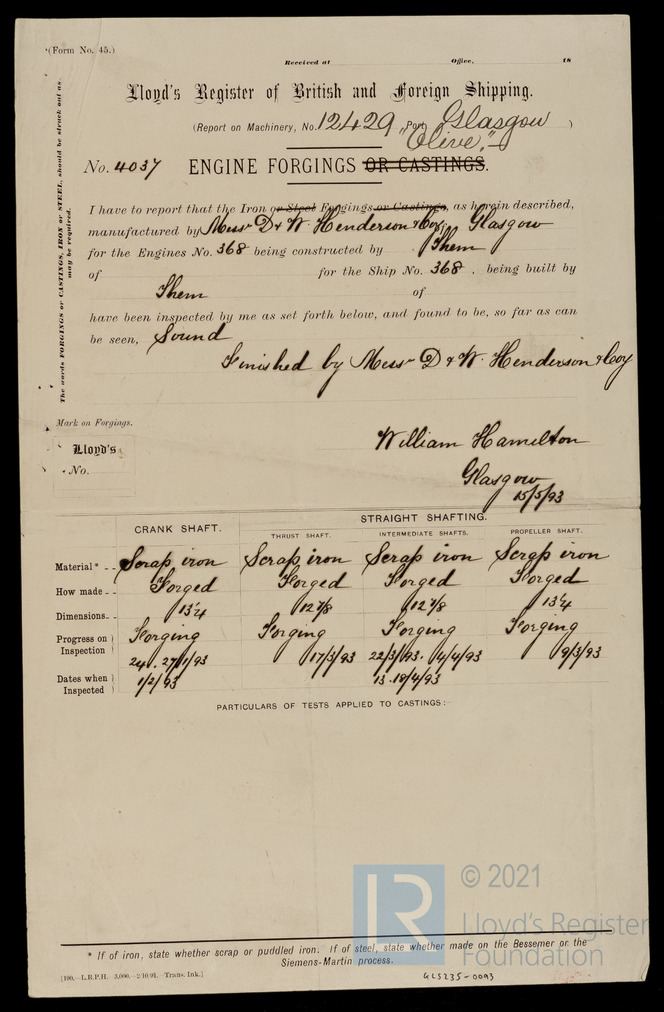 (Form No. 45.)
Received at Office, 18
Lloyd's Register of British and Foreign Shipping.
(Report on Machinery, No. 12429 Port Glasgow )
"Olive"
No. 4037 ENGINE FORGINGS OR CASTINGS.
I have to report that the Iron or Steel Forgings or Castings, as herein described,
manufactured by Messrs D & W Henderson & Coy, Glasgow
for the Engines No. 368 being constructed by Them
of for the Ship No. 368, being built by
Them of
have been inspected by me as set forth below, and found to be, so far as can
be seen, Sound
Finished by Messrs D & W. Henderson & Coy
The words FORGINGS or CASTINGS, IRON or STEEL, should be struck out as
may be required.
Mark on Forgings.
Lloyd's
No.
William Hamilton
Glasgow
15/5/93
CRANK SHAFT. STRAIGHT SHAFTING.
THRUST SHAFT. INTERMEDIATE SHAFTS. PROPELLER SHAFT.
Material* Scrap iron Scrap iron Scrap iron Scrap iron
How made Forged Forged Forged Forged
Dimensions 13¼ 12⅞ 12⅞ 13¼
Progress on Inspection Forging Forging Forging Forging
Dates when Inspected 24. 27/1/93 17/3/93 22/3/93. 4/4/93 9/3/93
1/2/93 13. 18/4/93
PARTICULARS OF TESTS APPLIED TO CASTINGS:—
© 2021
Lloyd's Register
Foundation
LR
* If of iron, state whether scrap or puddled iron. If of steel, state whether made on the Bessemer or the
Siemens-Martin process.
[190.—L.R.P.H. 3,000.—2/10/91.—Trans. Ink.]
GLS235-0093